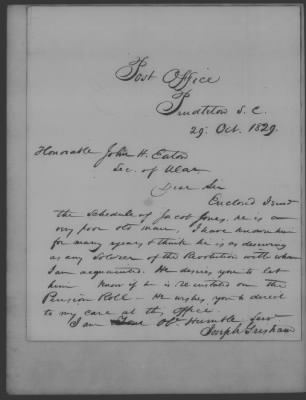 Post Office
Pendleton S. C.
29. Oct. 1829.
Honorable John H. Eaton
Sec. of War
Dear Sir
Enclosed I send
the Schedule of Jacob Jones, he is a
very poor old man, I have known him
for many years & think he is as deserving
as any Soldier of the Revolution with whom
I am acquainted. He desires you to let
him know if he is reinstated on the
Pension Roll - He wishes you to direct
to my care at this office.
I am Obt. Humble Servt
Joseph Gresham